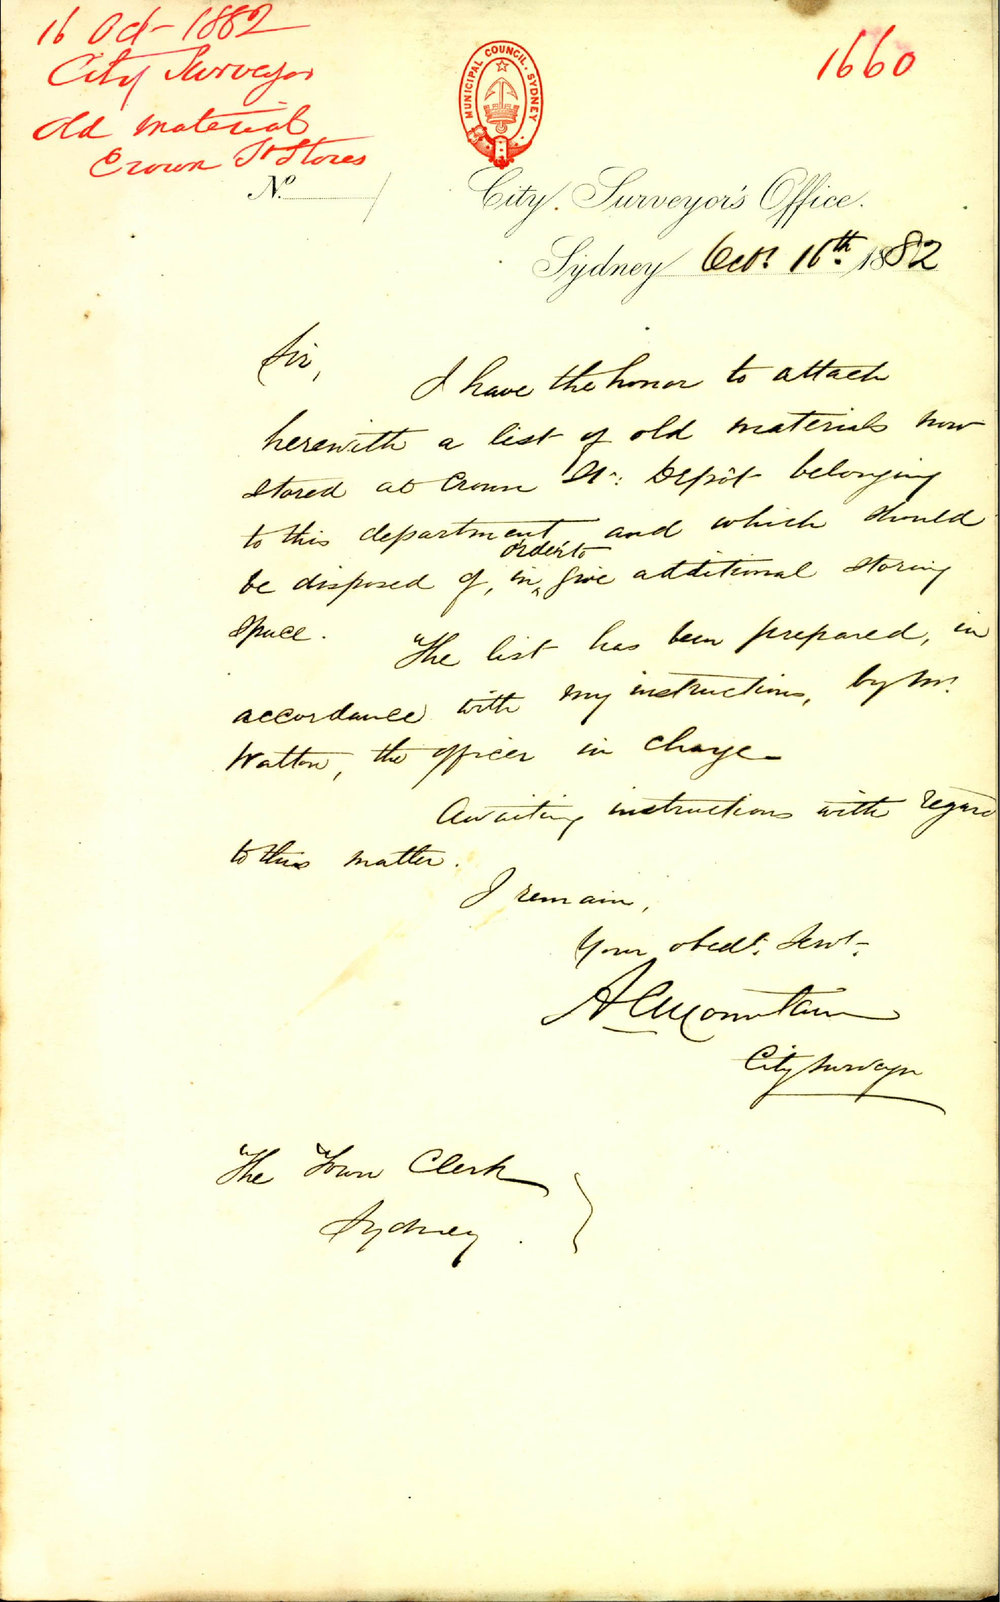 16 Oct 1882
City Surveyor
Old Material
Crown St Stores
1660
MUNICIPAL COUNCIL. SYDNEY
No.
City Surveyor's Office.
Sydney Octr. 16th. 1882
Sir,
I have the honor to attach
herewith a list of old materials now
stored at Crown St: Depôt belonging
to this department and which should
order to
be disposed of, in ‸ give additional storing
space.
The list has been prepared, in
accordance with my instructions, by Mr.
Watton, the officer in charge
Awaiting instructions with regard
to this matter.
I remain,
Your obedt. Servt.
A C Mountain
City Surveyor
The Town Clerk
Sydney.